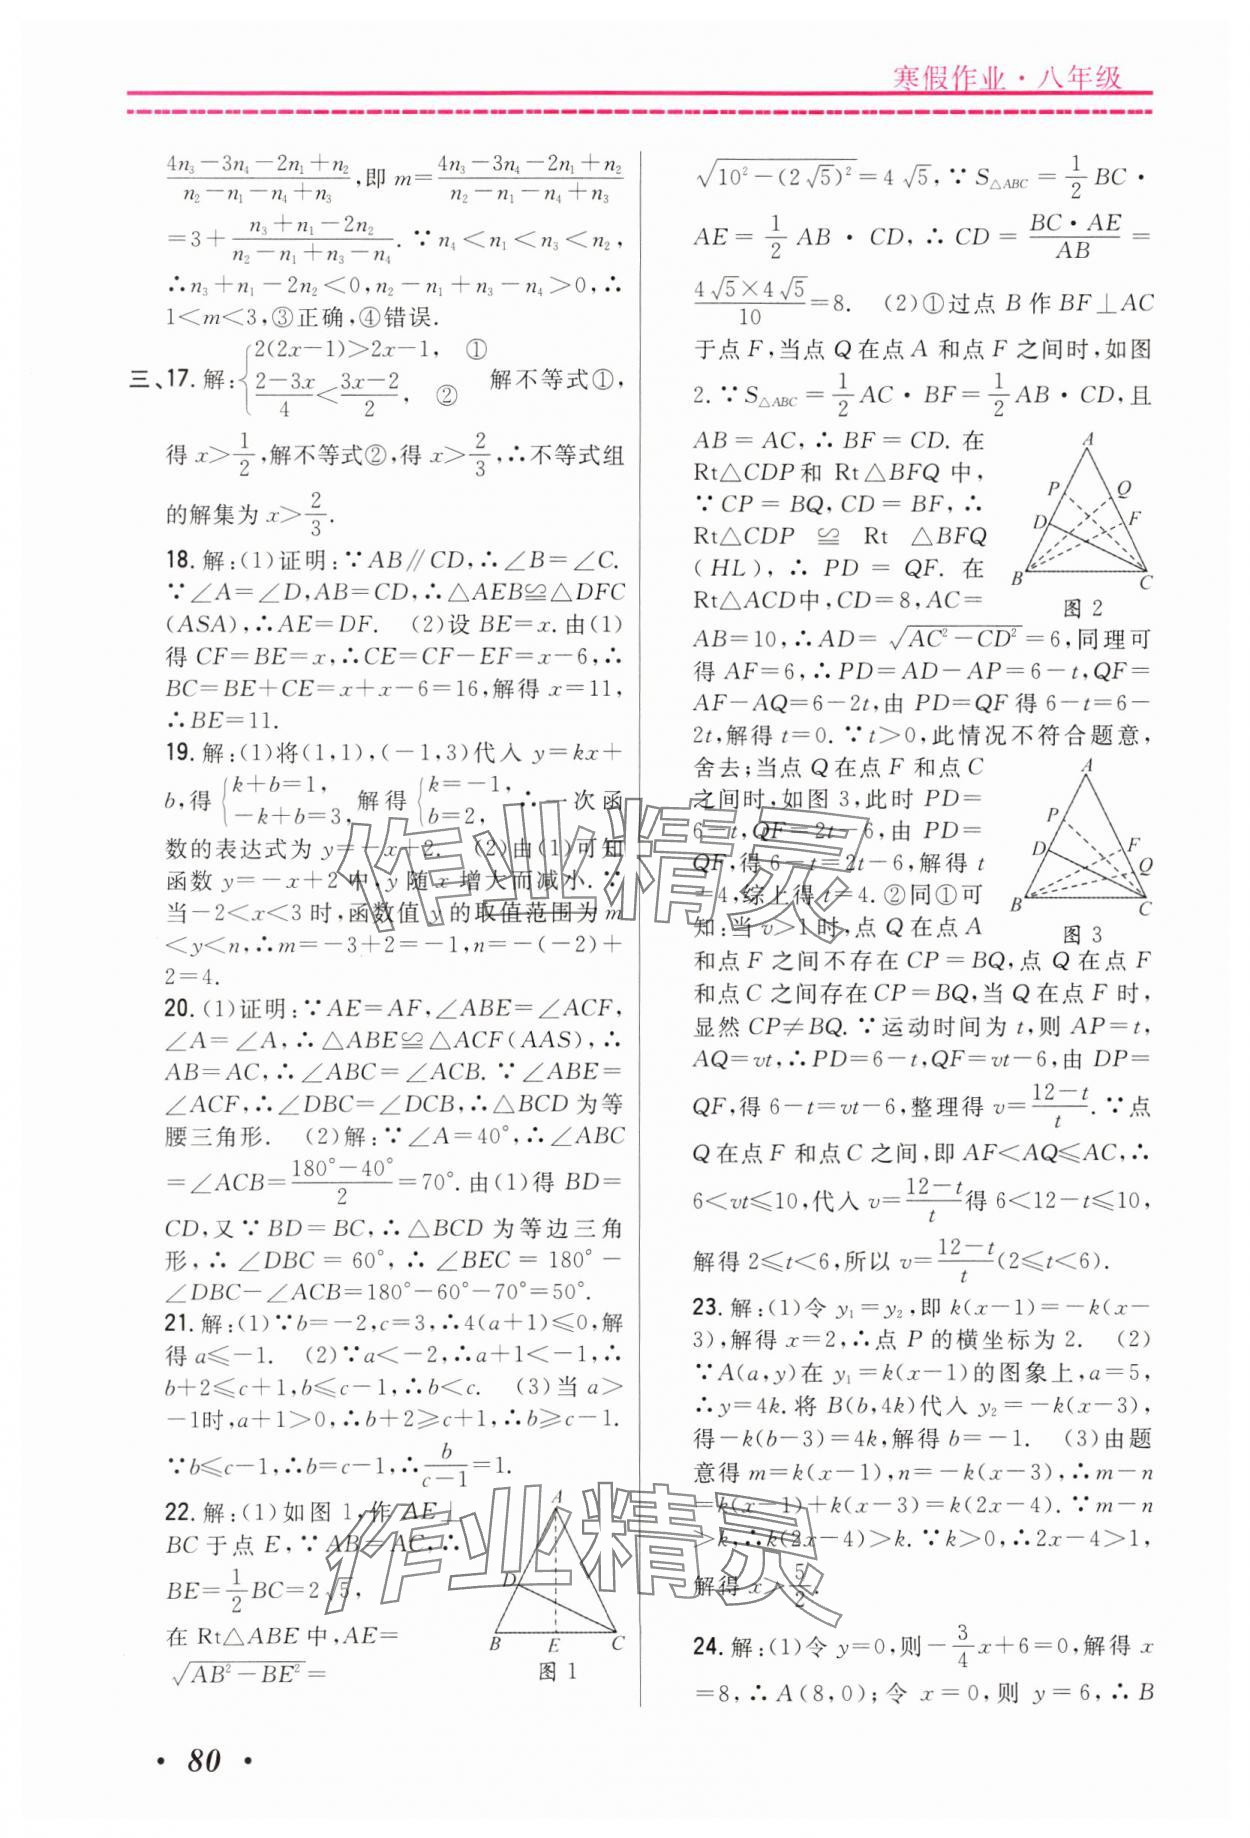 寒假作业·八年级
\frac{4n₃-3n₄-2n₁+n₂}{n₂-n₁-n₄+n₃},即 m=\frac{4n₃-3n₄-2n₁+n₂}{n₂-n₁-n₄+n₃}
=3+\frac{n₃+n₁-2n₂}{n₂-n₁+n₃-n₄}.∵n₄<n₁<n₃<n₂,
∴n₃+n₁-2n₂<0,n₂-n₁+n₃-n₄>0,∴
1<m<3,③正确,④错误.
三、17.解:{2(2x-1)>2x-1, ① \frac{2-3x}{4}<\frac{3x-2}{2}, ② 解不等式①,
得 x>\frac{1}{2},解不等式②,得 x>\frac{2}{3},∴不等式组
的解集为 x>\frac{2}{3}.
18.解:(1)证明:∵AB∥CD,∴∠B=∠C.
∵∠A=∠D,AB=CD,∴△AEB≌△DFC
(ASA),∴AE=DF. (2)设 BE=x.由(1)
得 CF=BE=x,∴CE=CF-EF=x-6,∴
BC=BE+CE=x+x-6=16,解得 x=11,
∴BE=11.
19.解:(1)将(1,1),(-1,3)代入 y=kx+
b,得{k+b=1, -k+b=3, 解得{k=-1, b=2, ∴一次函
数的表达式为 y=-x+2. (2)由(1)可知
函数 y=-x+2 中,y 随 x 增大而减小.∵
当-2<x<3 时,函数值 y 的取值范围为 m
<y<n,∴m=-3+2=-1,n=-(-2)+
2=4.
20.(1)证明:∵AE=AF,∠ABE=∠ACF,
∠A=∠A,∴△ABE≌△ACF(AAS),∴
AB=AC,∴∠ABC=∠ACB.∵∠ABE=
∠ACF,∴∠DBC=∠DCB,∴△BCD 为等
腰三角形. (2)解:∵∠A=40°,∴∠ABC
=∠ACB=\frac{180°-40°}{2}=70°.由(1)得 BD=
CD,又∵BD=BC,∴△BCD 为等边三角
形,∴∠DBC=60°,∴∠BEC=180°-
∠DBC-∠ACB=180°-60°-70°=50°.
21.解:(1)∵b=-2,c=3,∴4(a+1)≤0,解
得 a≤-1. (2)∵a<-2,∴a+1<-1,∴
b+2≤c+1,b≤c-1,∴b<c. (3)当 a>
-1时,a+1>0,∴b+2≥c+1,∴b≥c-1.
∵b≤c-1,∴b=c-1,∴\frac{b}{c-1}=1.
22.解:(1)如图 1,作 AE⊥
BC 于点 E,∵AB=AC,∴
BE=\frac{1}{2}BC=2√5,
在 Rt△ABE 中,AE=
√(AB²-BE²)=
A
D
B E C
图 1
√(10²-(2√5)²)=4√5,∵S△ABC=\frac{1}{2}BC·
AE=\frac{1}{2}AB·CD,∴CD=\frac{BC·AE}{AB}=
\frac{4√5×4√5}{10}=8. (2)①过点 B 作 BF⊥AC
于点 F,当点 Q 在点 A 和点 F 之间时,如图
2.∵S△ABC=\frac{1}{2}AC·BF=\frac{1}{2}AB·CD,且
AB=AC,∴BF=CD.在
Rt△CDP和 Rt△BFQ 中,
∵CP=BQ,CD=BF,∴
Rt△CDP ≌ Rt △BFQ
(HL),∴PD=QF.在
Rt△ACD中,CD=8,AC=
A
P Q
D F
B C
图 2
AB=10,∴AD=√(AC²-CD²)=6,同理可
得 AF=6,∴PD=AD-AP=6-t,QF=
AF-AQ=6-2t,由 PD=QF 得 6-t=6-
2t,解得 t=0.∵t>0,此情况不符合题意,
舍去;当点 Q 在点 F 和点 C
之间时,如图 3,此时 PD=
6-t,QF=2t-6,由 PD=
QF,得 6-t=2t-6,解得 t
=4,综上得 t=4.②同①可
知:当 v>1 时,点 Q 在点 A
A
P
D F
Q
B C
图 3
和点 F 之间不存在 CP=BQ,点 Q 在点 F
和点 C 之间存在 CP=BQ,当 Q 在点 F 时,
显然 CP≠BQ.∵运动时间为 t,则 AP=t,
AQ=vt,∴PD=6-t,QF=vt-6,由 DP=
QF,得 6-t=vt-6,整理得 v=\frac{12-t}{t}.∵点
Q 在点 F 和点 C 之间,即 AF<AQ≤AC,∴
6<vt≤10,代入 v=\frac{12-t}{t}得 6<12-t≤10,
解得 2≤t<6,所以 v=\frac{12-t}{t}(2≤t<6).
23.解:(1)令 y₁=y₂,即 k(x-1)=-k(x-
3),解得 x=2,∴点 P 的横坐标为 2. (2)
∵A(a,y)在 y₁=k(x-1)的图象上,a=5,
∴y=4k.将 B(b,4k)代入 y₂=-k(x-3),
得-k(b-3)=4k,解得 b=-1. (3)由题
意得 m=k(x-1),n=-k(x-3),∴m-n
=k(x-1)+k(x-3)=k(2x-4).∵m-n
>k,∴k(2x-4)>k.∵k>0,∴2x-4>1,
解得 x>\frac{5}{2}.
24.解:(1)令 y=0,则-\frac{3}{4}x+6=0,解得 x
=8,∴A(8,0);令 x=0,则 y=6,∴B
·80·
作业精灵
作业精灵